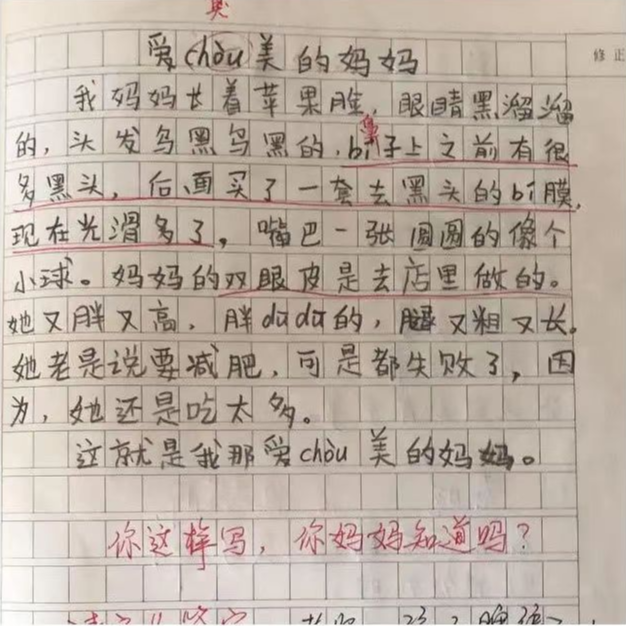 臭
爱chòu美的妈妈
修正
我妈妈长着苹果脸，眼睛黑溜溜
的，头发乌黑乌黑的，bí鼻子上之前有很
多黑头，后面买了一套去黑头的bí膜，
现在光滑多了，嘴巴一张圆圆的像个
小球。妈妈的双眼皮是去店里做的。
她又胖又高，胖dūdū的，腿又粗又长。
她老是说要减肥，可是都失败了，因
为，她还是吃太多。
这就是我那爱chòu美的妈妈。
你这样写，你妈妈知道吗？